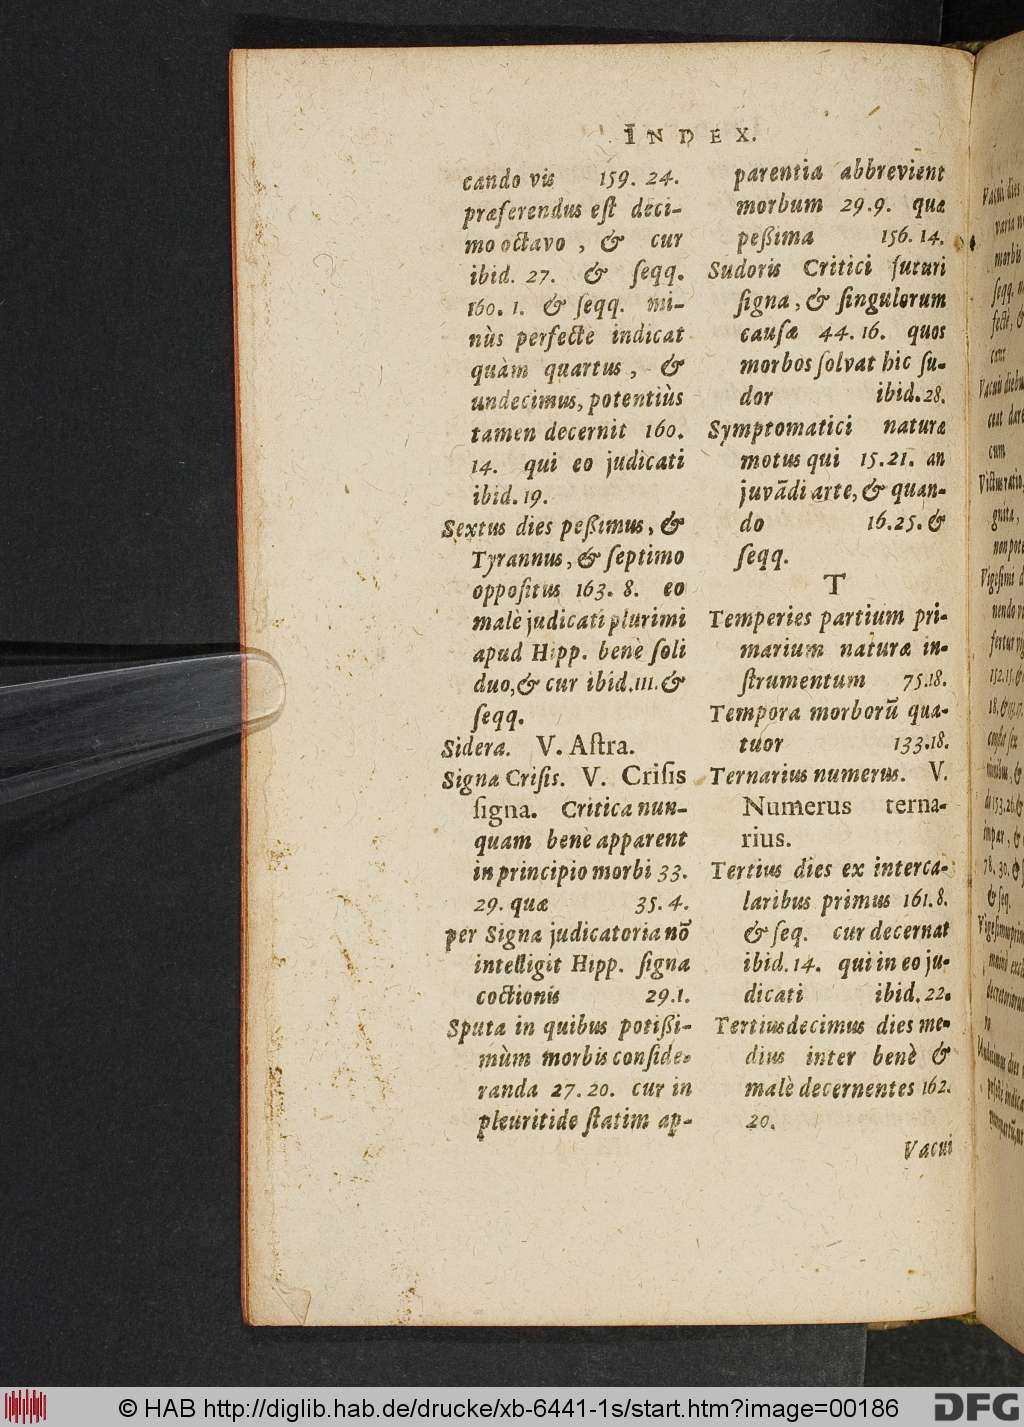 INDEX.
cando vis 159. 24.
præferendus eſt deci-
mo octavo, & cur
ibid. 27. & ſeqq.
160. 1. & ſeqq. mi-
nùs perfecte indicat
quàm quartus, &
undecimus, potentiùs
tamen decernit 160.
14. qui eo judicati
ibid. 19.
Sextus dies peßimus, &
Tyrannus, & ſeptimo
oppoſitus 163. 8. eo
malè judicati plurimi
apud Hipp. benè ſoli
duo, & cur ibid. 111. &
ſeqq.
Sidera. V. Aſtra.
Signa Criſis. V. Criſis
ſigna. Critica nun-
quam benè apparent
in principio morbi 33.
29. quæ 35. 4.
per Signa judicatoria nõ
intelligit Hipp. ſigna
coctionis 29. 1.
Sputa in quibus potißi-
mùm morbis conſide-
randa 27. 20. cur in
pleuritide ſtatim ap-
parentia abbrevient
morbum 29. 9. quæ
peßima 156. 14.
Sudoris Critici futuri
ſigna, & ſingulorum
cauſæ 44. 16. quos
morbos ſolvat hic ſu-
dor ibid. 28.
Symptomatici naturæ
motus qui 15. 21. an
juvãdi arte, & quan-
do 16. 25. &
ſeqq.
T
Temperies partium pri-
marium naturæ in-
ſtrumentum 75. 18.
Tempora morborũ qua-
tuor 133. 18.
Ternarius numerus. V.
Numerus terna-
rius.
Tertius dies ex interca-
laribus primus 161. 8.
& ſeq. cur decernat
ibid. 14. qui in eo ju-
dicati ibid. 22.
Tertiusdecimus dies me-
dius inter benè &
malè decernentes 162.
20.
Vacui
Vacui dies
varia
morbis
ſeqq.
Vacui diebus
cum
Victus ratio,
non pote
Vigeſimi
© HAB http://diglib.hab.de/drucke/xb-6441-1s/start.htm?image=00186
DFG